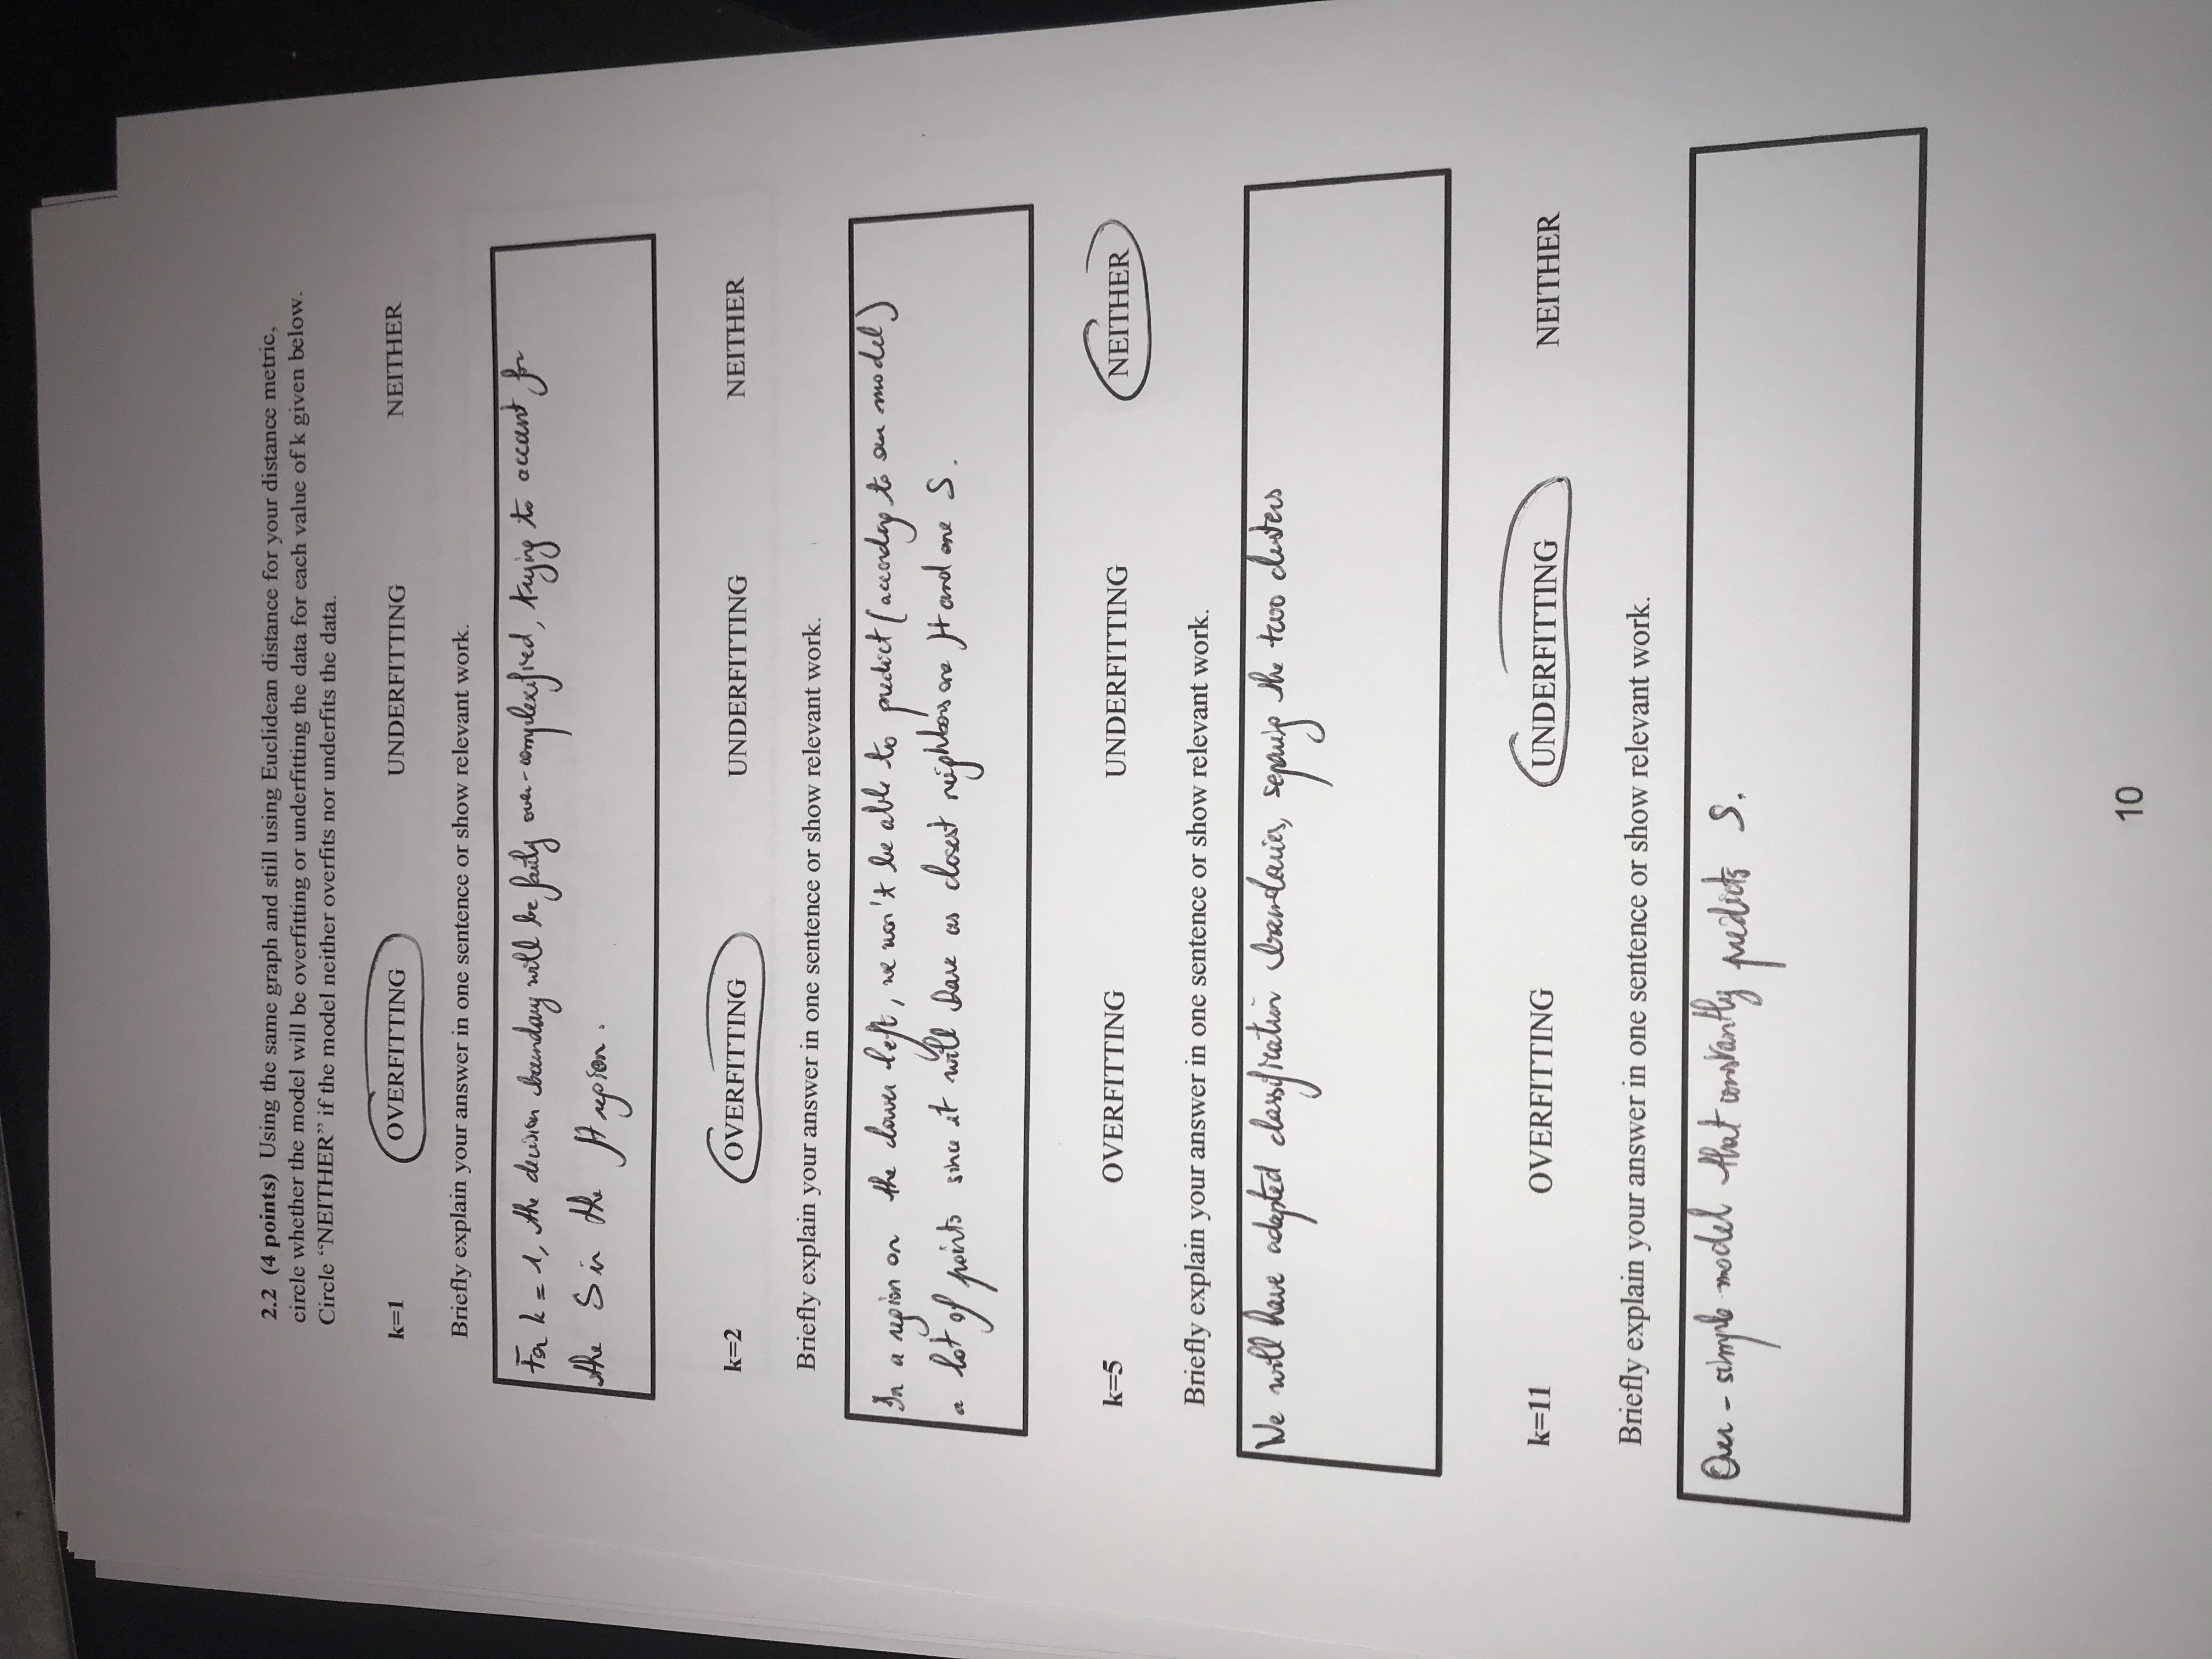 2.2 (4 points) Using the same graph and still using Euclidean distance for your distance metric,
circle whether the model will be overfitting or underfitting the data for each value of k given below.
Circle “NEITHER” if the model neither overfits nor underfits the data.
k=1 OVERFITTING UNDERFITTING NEITHER
Briefly explain your answer in one sentence or show relevant work.
For k = 1, the decision boundary will be fairly over-complexified, trying to account for
the S in the H region.
k=2 OVERFITTING UNDERFITTING NEITHER
Briefly explain your answer in one sentence or show relevant work.
In a region on the lower left, we won't be able to predict (according to our model)
a lot of points since it will have as closest neighbors one H and one S.
k=5 OVERFITTING UNDERFITTING NEITHER
Briefly explain your answer in one sentence or show relevant work.
We will have adapted classification boundaries, the two clusters
k=11 OVERFITTING UNDERFITTING NEITHER
Briefly explain your answer in one sentence or show relevant work.
Over-simple model that constantly predicts S.
10